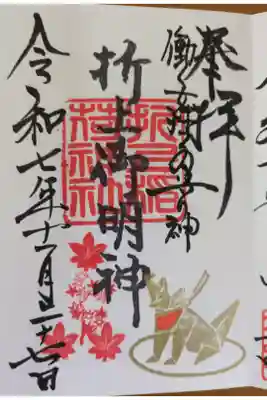 奉拝
働く女性の守り神
折上御明神
折上稲
荷神社
令和七年十一月二十七日